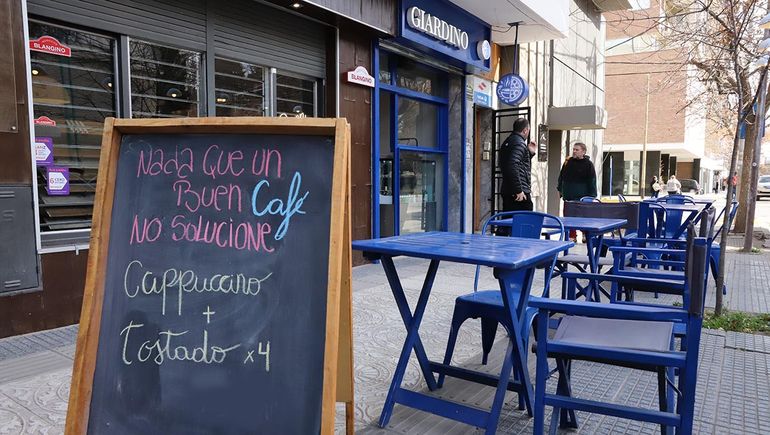 BLANGINO
BLANGINO
GIARDINO
Nada Que un
Buen Café
No Solucione
Cappuccino
+
Tostado x4